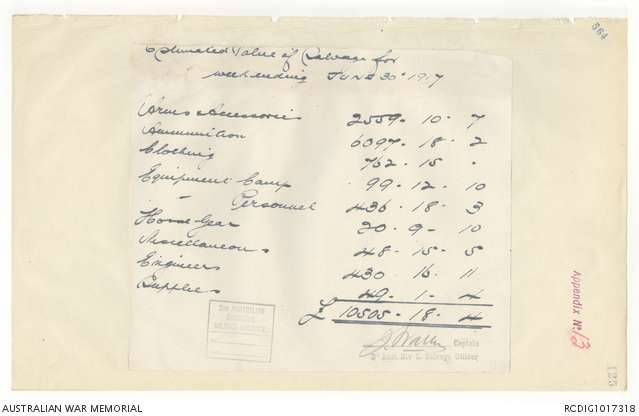 564
Estimated Value of Salvage for
week ending JUNE 30th 1917
Arms & Accessories 2559 - 10 - 7
Ammunition 6097 - 18 - 2
Clothing 762 - 15 - .
Equipment Camp 99 - 12 - 10
" Personnel 436 - 18 - 3
Horse Gear 20 - 9 - 10
Miscellaneous 48 - 15 - 5
Engineers 430 . 16 . 11
Supplies 49 - 1 - 4
£ 10505 - 18 - 4
Captain
Aust. Div. Salvage Officer
Appendix No. 13
123
AUSTRALIAN WAR MEMORIAL
RCDIG1017318